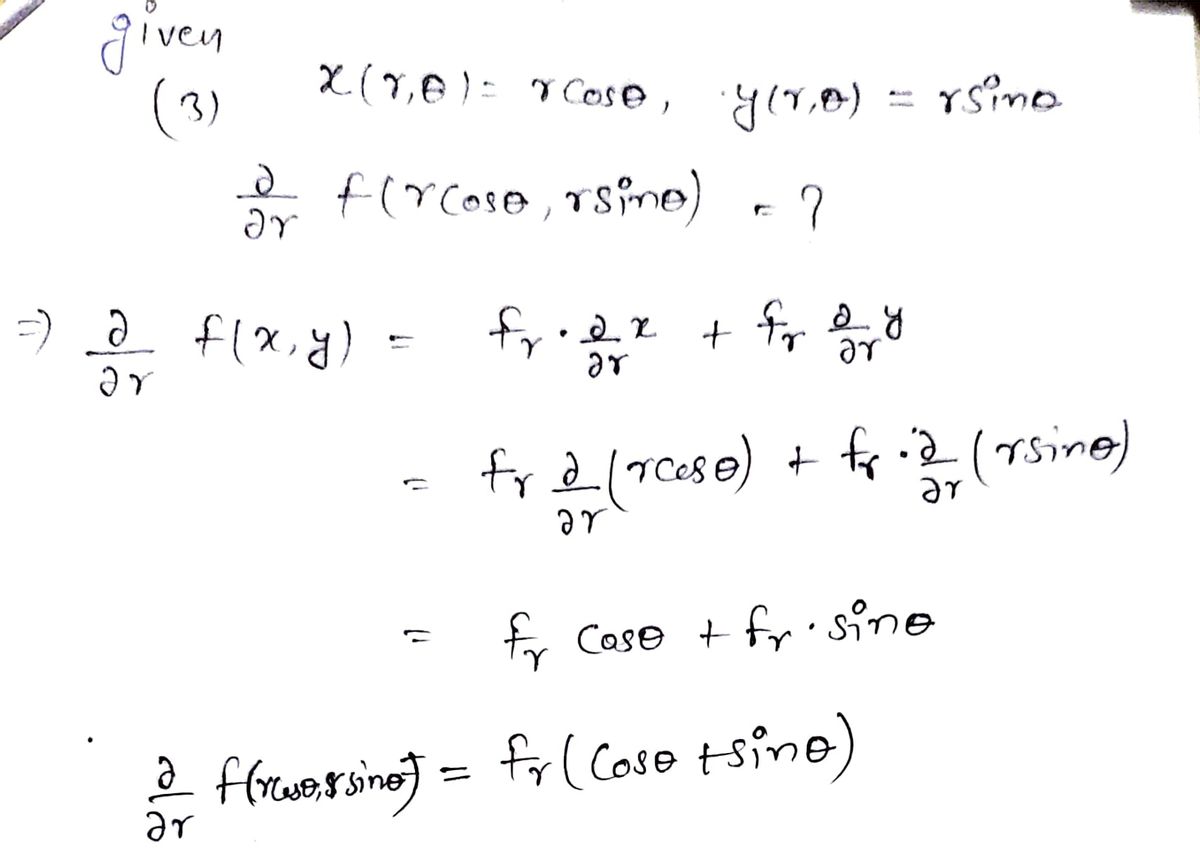 given
(3) x(r,θ) = r cosθ, y(r,θ) = r sinθ
∂/∂r f(r cosθ, r sinθ) = ?
⇒ ∂/∂r f(x,y) = fr · ∂/∂r x + fr ∂/∂r y
= fr ∂/∂r (r cosθ) + fr · ∂/∂r (r sinθ)
= fr cosθ + fr · sinθ
∂/∂r f(r cosθ, r sinθ) = fr (cosθ + sinθ)